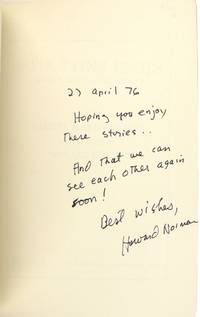 27 april 76
Hoping you enjoy
These stories..
And that we can
see each other again
soon!
Best wishes,
Howard Norman